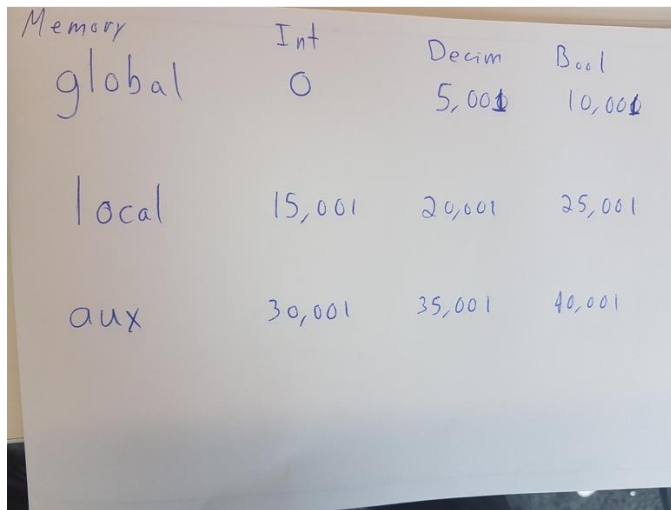 Memory Int Decim Bool
global 0 5,001 10,001
local 15,001 20,001 25,001
aux 30,001 35,001 40,001